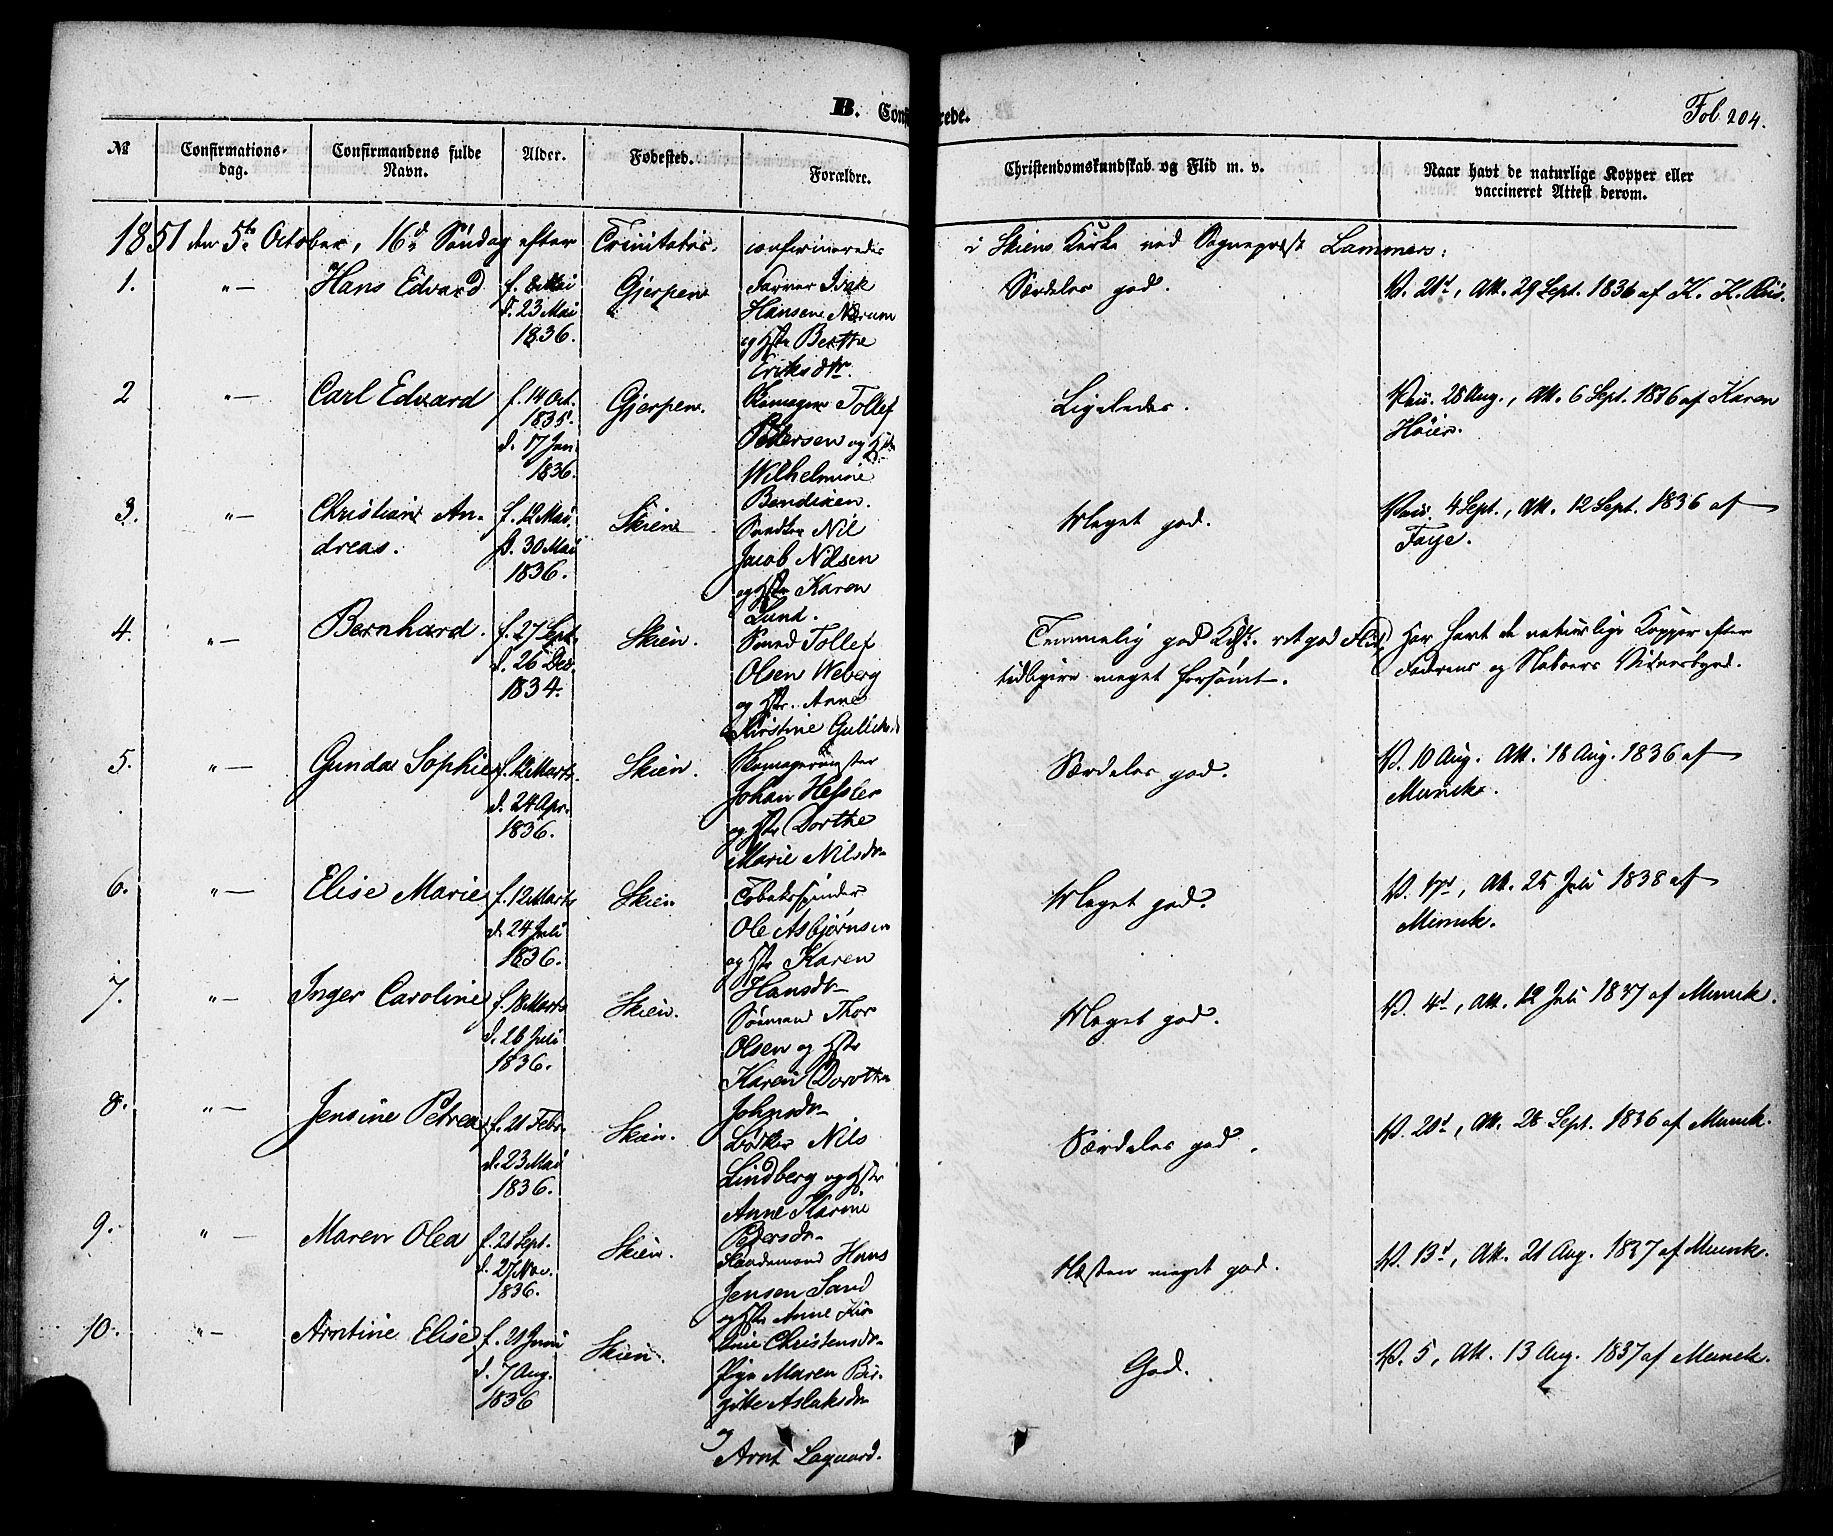 B. Conf
rede.
Fol 204.
№
Confirmations-
dag.
Confirmandens fulde
Navn.
Alder.
Fødested.
Forældre.
Christendomskundskab og Flid m. v.
Naar havt de naturlige Kopper eller
vaccineret Attest derom.
1851 den 5te October, 16de Søndag efter Trinitatis, confirmeredes i Skiens Kirke ved Sognepræst Lammers:
1. "— Hans Edvard
f. 8 Mai
d. 23 Mai
1836.
Gjerpen
Farver Isak
Hansen Nærum
og Hstr Berthe
Eriksdtr.
Særdeles god.
V. 21d, Att. 29 Sept. 1836 af K. K. Riis.
2 "— Carl Edvard
f. 14 Oct.
1835.
d. 17 Jan.
1836.
Gjerpen.
Skomager Tollef
Pedersen og Hstr
Wilhelmine
Bendixen.
Ligeledes.
Vac. 28 Aug., Att. 6 Sept. 1836 af Karen
Høier.
3. "— Christian An-
dreas.
f. 12 Mai.
d. 30 Mai
1836.
Skien
Snedker Nil
Jacob Nilsen
og Hstr Karen
Lund.
Meget god.
Vac. 4 Sept., Att. 12 Sept. 1836 af
Faye.
4. "— Bernhard.
f. 27 Sept.
d. 26 Dec.
1834.
Skien.
Smed Tollef
Olsen Weberg
og Hstr. Anne
Kirstine Gulichsd
Temmelig god Kdsk. ret god Flid,
tidligere meget forsømt.
Har havt de naturlige Kopper efter
Faderens og Naboers Vidnesbyrd.
5. "— Gunda Sophie
f. 12 Marts.
d. 24 Apr.
1836.
Skien.
Skomagermester
Johan Hesler
og Hstr Dorthe
Marie Nilsdr
Særdeles god.
V. 10 Aug. Att. 18 Aug. 1836 af
Munck.
6. "— Elise Marie
f. 12 Marts
d. 24 Juli
1836.
Skien
Tobakspinder
Ole Asbjørnsen
og Hstr Karen
Hansdr
Meget god.
V. 17d, Att. 25 Juli 1838 af
Munck.
7. "— Inger Caroline
f. 18 Marts
d. 26 Juli
1836.
Skien.
Sømand Thor
Olsen og Hstr
Karen Dorothea
Johnsdr
Meget god.
V. 4d, Att. 12 Juli 1837 af Munck.
8. "— Jensine Petrea
f. 21 Febr.
d. 23 Mai
1836.
Skien.
Bødker Nils
Lindberg og Hstr
Anne Karine
Pedersdr
Særdeles god.
V. 20d, Att. 28 Sept. 1836 af Munck.
9. "— Maren Olea
f. 21 Sept.
d. 27 Nov.
1836.
Skien.
Haandsmand Hans
Jensen Sand
og Hstr Anne Kir-
stine Christensdr
Næsten meget god.
V. 13d, Att. 21 Aug. 1837 af Munck.
10. "— Arntine Elise
f. 21 Juni
d. 7 Aug.
1836
Skien.
Pige Maren Bir-
gitte Aslaksdr
og
Arnt Lagaard.
God.
V. 5, Att. 13 Aug. 1837 af Munck.